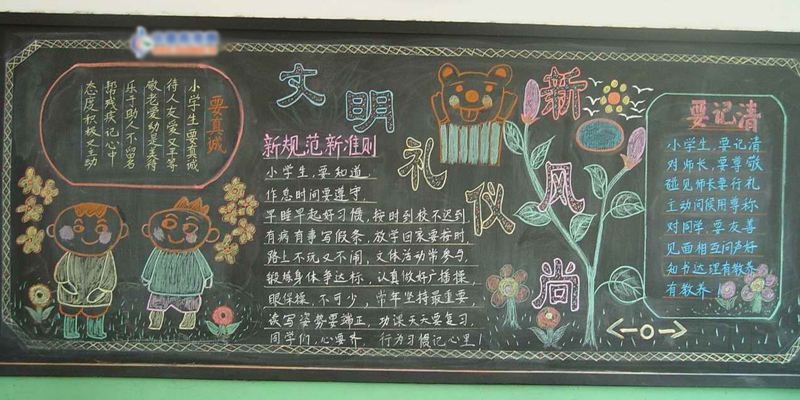 要真诚
小学生要真诚
待人友爱又平等
敬老爱幼是美德
乐于助人不留名
帮残疾记心中
态度积极又主动
文明
礼仪
新风尚
新规范新准则
小学生,要知道,
作息时间要遵守,
早睡早起好习惯,按时到校不迟到,
有病有事写假条,放学回家要按时,
路上不玩又不闹,文体活动常参与,
锻炼身体争达标,认真做好广播操,
眼保操,不可少,常年坚持最重要,
读写姿势要端正,功课天天要复习,
同学们,心要齐 行为习惯记心里!
要记清
小学生,要记清
对师长,要尊敬
碰见师长要行礼
主动问候用尊称
对同学,要友善
见面相互问声好
知书达理有教养
有教养